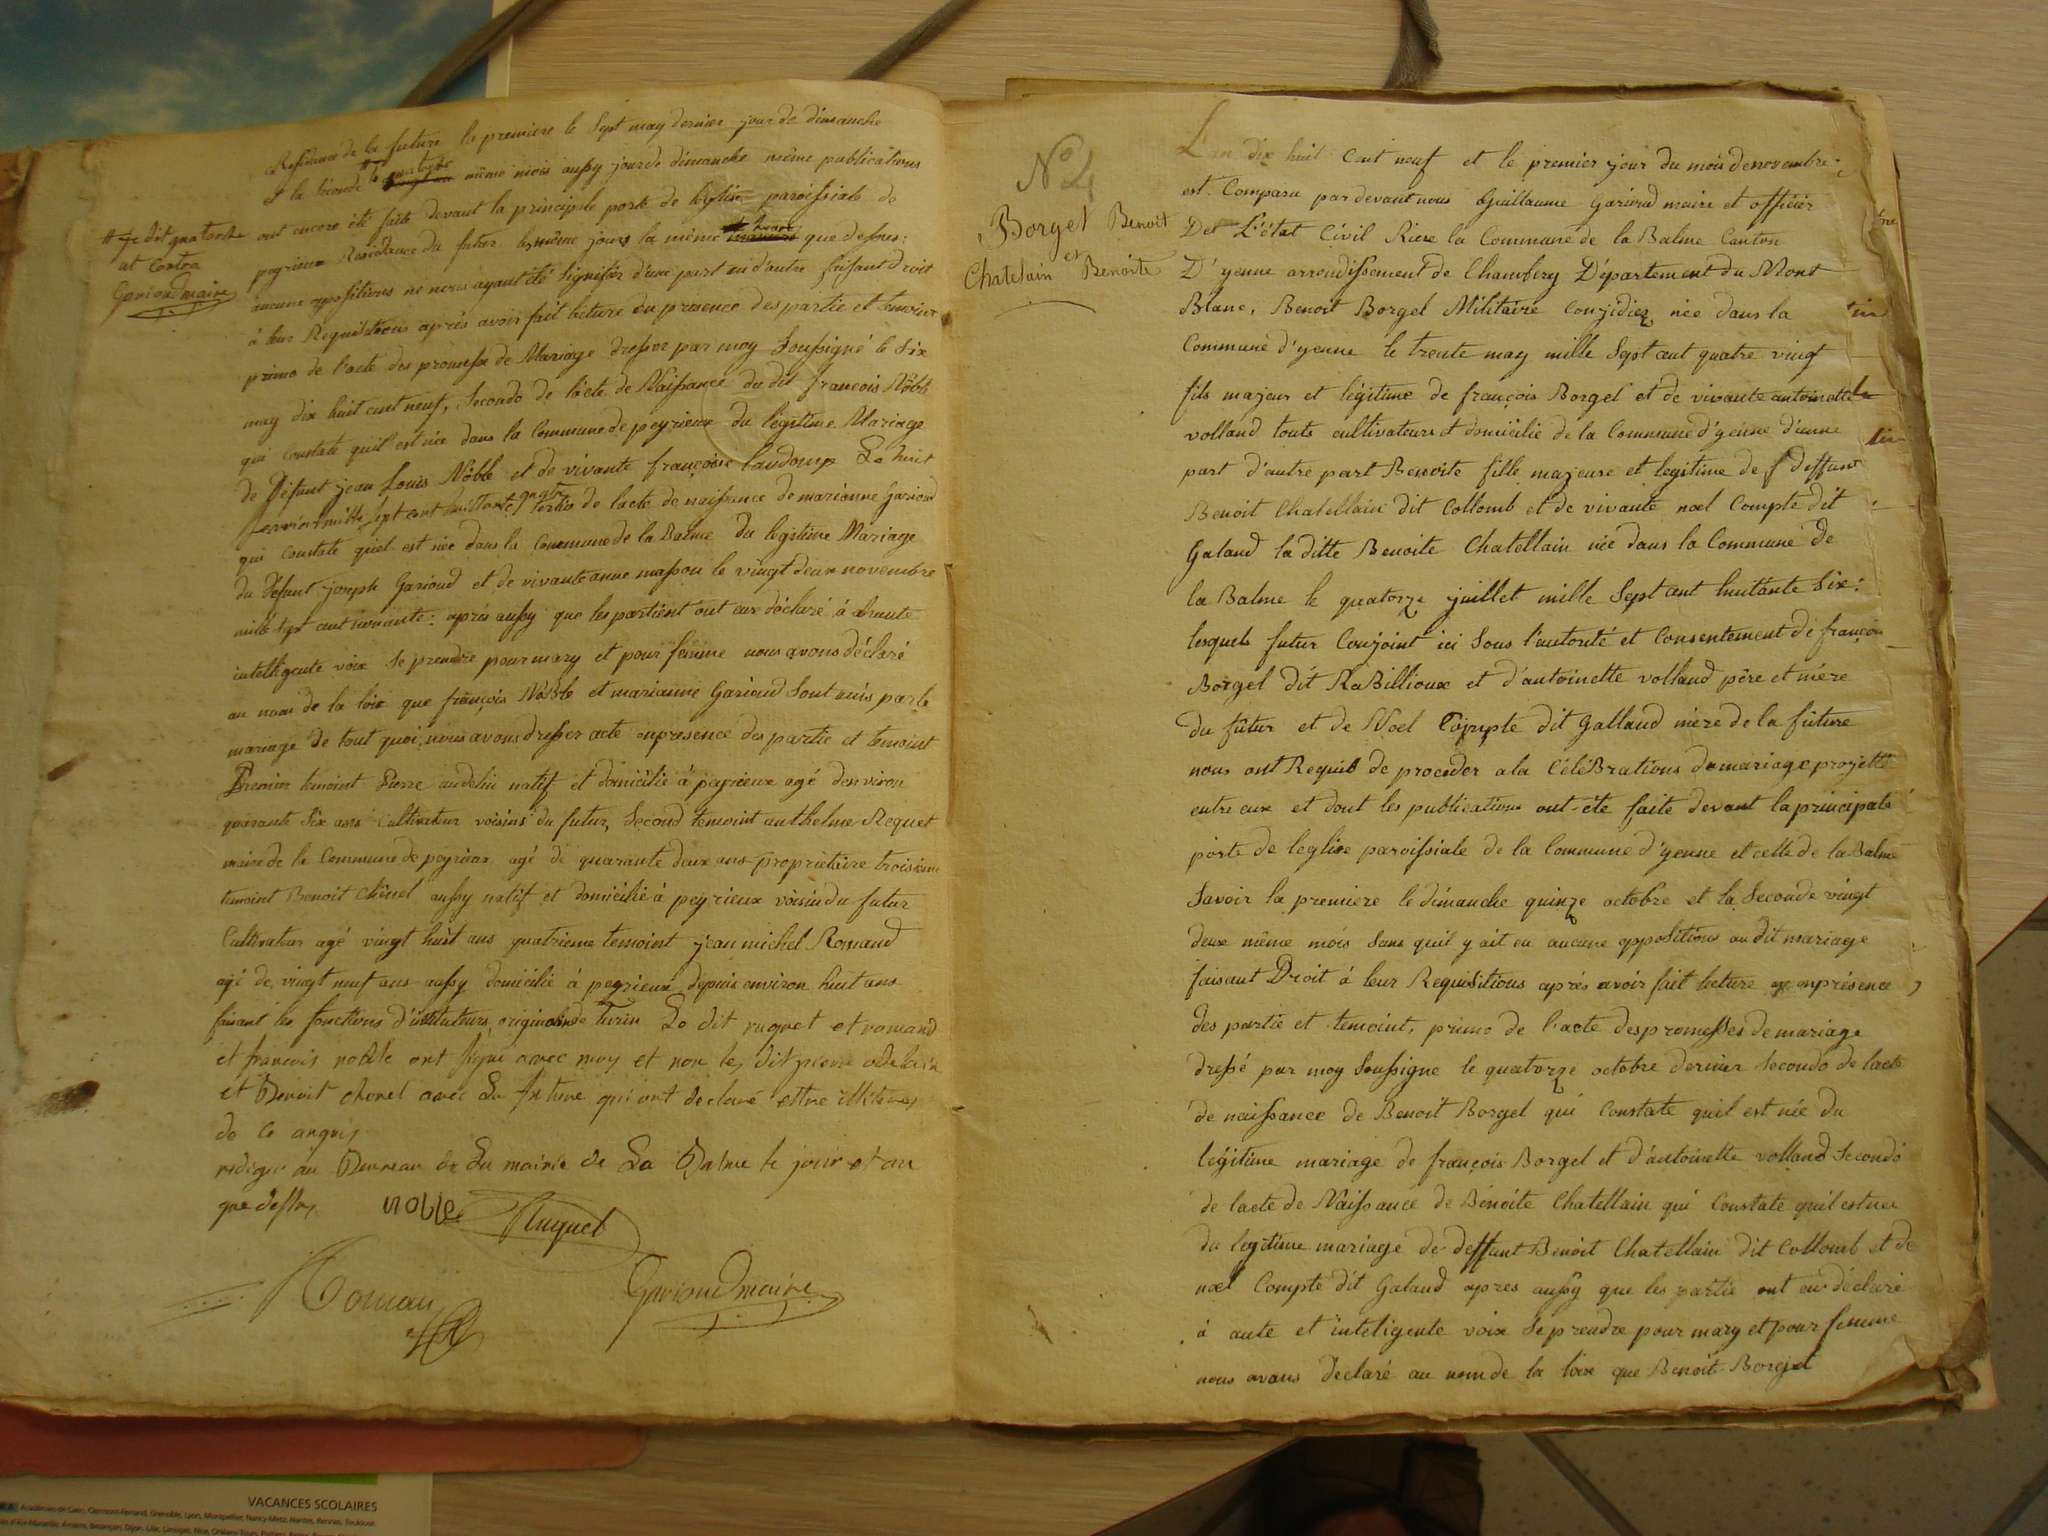 Residence de la future la premiere le Sept may dernier jour de dimanche
et la seconde le quatorze même mois aussy jour de dimanche même publications
ont encore été faite devant la principale porte de leglise paroissiale de
peyrieux Residence du futur les même jours la même heure que dessus:
aucune oppositions ne nous ayant été signifiéz d'une part ni d'autre faisant droit
à leur Requisitions aprés avoir fait lecture en presence des partie et temoint
primo de l'acte des promesse de Mariage dressez par moy Soussigné le Six
may dix huit cent neuf, Secondo de lacte de Naissance du dit françois Noble
qui constate quil est née dans la Commune de peyrieux du légitime Mariage
de Défunt jean Louis Noble et de vivante françoise Le huit
mille sept cent huittante quatre tertio de lacte de naissance de marianne Garioud
qui constate quel est née dans la Commune de la Balme du legitime Mariage
du défunt joseph Garioud et de vivante anne masson le vingt deux novembre
mille sept cent : aprés aussy que les partient ont eux déclaré à
inteligente voix se prendre pour mary et pour femme nous avons déclaré
au nom de la loix que françois Noble et marianne Garioud sont unis par le
mariage de tout quoi, nous avons dresser acte en presence des partie et temoint
Premier temoint Pierre audelin natif et domicilié à peyrieux agé d'environ
quarante Six ans Cultivateur voisins du futur, Second temoint anthelme Requet
maire de la Commune de peyrieux agé de quarante deux ans proprietaire troisieme
temoint Benoit Chenel aussy natif et domicilié à peyrieux voisin du futur
Cultivateur agé vingt huit ans quatrieme temoint jean michel Romand
agé de vingt neuf ans aussy domicilié à peyrieux depuis environ huit ans
faisant les fonctions d'instituteurs originaire de Turin Le dit ruquet et romand
et francois noble ont signé avec moy et non les dit pierre odelain
et Benoit chenel avec La future qui ont declaré estre illiteres
de ce anquis
redigé au Bureau de La mairie de La Balme le jour et an
que dessus
noble Ruquet
Romand Garioud maire
# Je dit quatorze
at contre
Garioud maire
N° 4
Borgel Benoit
et
Chatelain Benoite
L'an dix huit Cent neuf et le premier jour du mois de novembre:
est Comparu par devant nous Guillaume Garioud maire et officier
De L'état Civil Riere la Commune de la Balme Canton
D'yenne arrondissement de Chambery Département du Mont
Blanc, Benoit Borgel Militaire Conjidiez née dans la
Commune d'yenne le trente may mille Sept cent quatre vingt
fils majeur et légitime de françois Borgel et de vivante antoinette
volland touts cultivateurs et domicilié de la Commune d'yenne d'une
part d'autre part Benoite fille majeure et legitime de f deffunt
Benoit Chatellain dit Collomb et de vivante noel Compte dit
Galaud la ditte Benoite Chatellain née dans la Commune de
la Balme le quatorze juillet mille Sept cent huitante Six:
lesquels futur Conjoint ici Sous l'autorité et Consentement de françois
Borgel dit RaBillioux et d'antoinette volland père et mére
du fûtur et de Noel Compte dit Galland mere de la fûture
nous ont Requis de proceder a la CéléBrations de mariage projetté
entre eux et dont les publications ont-été faite devant la principale
porte de leglise paroissiale de la Commune d'yenne et celle de la Balme
Savoir la premiere le dimanche quinze octobre et la Seconde vingt
deux même mois Sans quil y ait eu aucune oppositions au dit mariage
faisant Droit à leur Requisitions aprés avoir fait lecture en présence
des partie et temoint, primo de l'acte des promesses de mariage
dressé par moy Soussigne le quatorze octobre dernier Secondo de lacte
de naissance de Benoit Borgel qui Constate quil est née du
légitime mariage de françois Borgel et d'antoinette volland Secondo
de lacte de Naissance de Benoite Chatellain qui Constate quil est nee
du legitime mariage de deffunt Benoit Chatellain dit Collomb et de
noel Compte dit Galaud apres aussy que les partie ont eu déclaré
à aute et inteligente voix Se prendre pour mary et pour femme
nous avons declaré au nom de la loix que Benoit Borgel
VACANCES SCOLAIRES